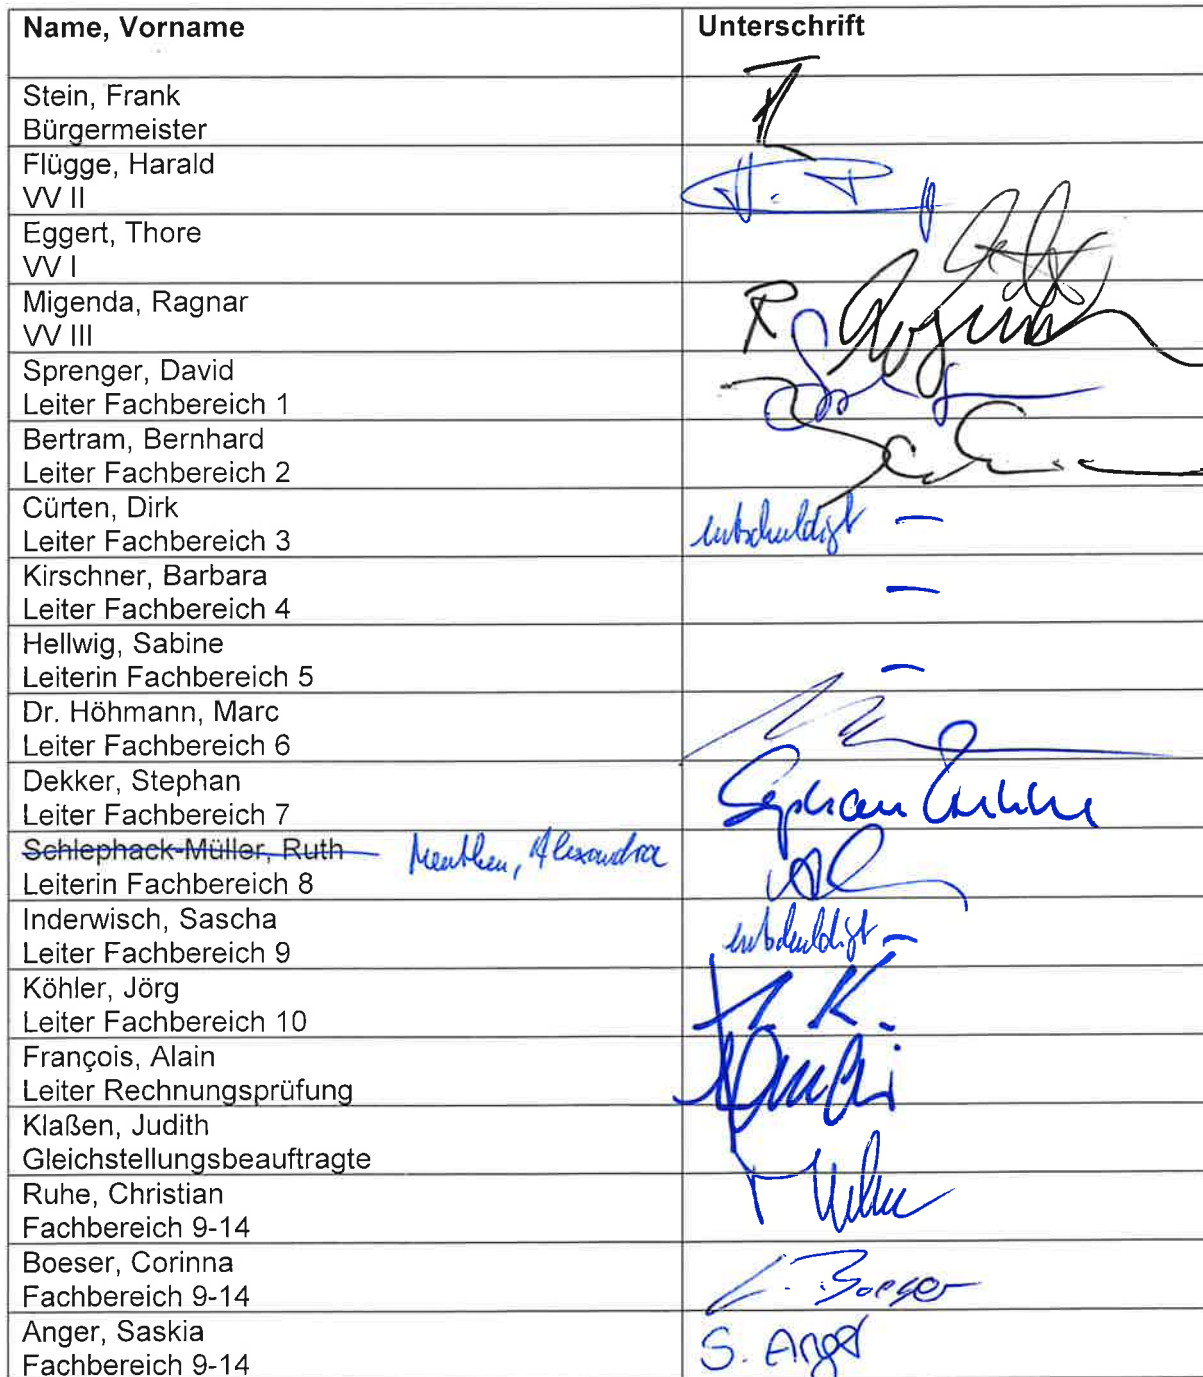 Name, Vorname Unterschrift
Stein, Frank
Bürgermeister
Flügge, Harald
VV II
Eggert, Thore
VV I
Migenda, Ragnar
VV III
Sprenger, David
Leiter Fachbereich 1
Bertram, Bernhard
Leiter Fachbereich 2
Cürten, Dirk
Leiter Fachbereich 3 entschuldigt –
Kirschner, Barbara –
Leiter Fachbereich 4
Hellwig, Sabine
Leiterin Fachbereich 5 –
Dr. Höhmann, Marc
Leiter Fachbereich 6
Dekker, Stephan
Leiter Fachbereich 7 Stephan Dekker
Schlephack-Müller, Ruth Meuthen, Alexandra
Leiterin Fachbereich 8
Inderwisch, Sascha
Leiter Fachbereich 9 entschuldigt –
Köhler, Jörg
Leiter Fachbereich 10
François, Alain
Leiter Rechnungsprüfung
Klaßen, Judith
Gleichstellungsbeauftragte
Ruhe, Christian
Fachbereich 9-14
Boeser, Corinna
Fachbereich 9-14 C. Boeser
Anger, Saskia
Fachbereich 9-14 S. Anger